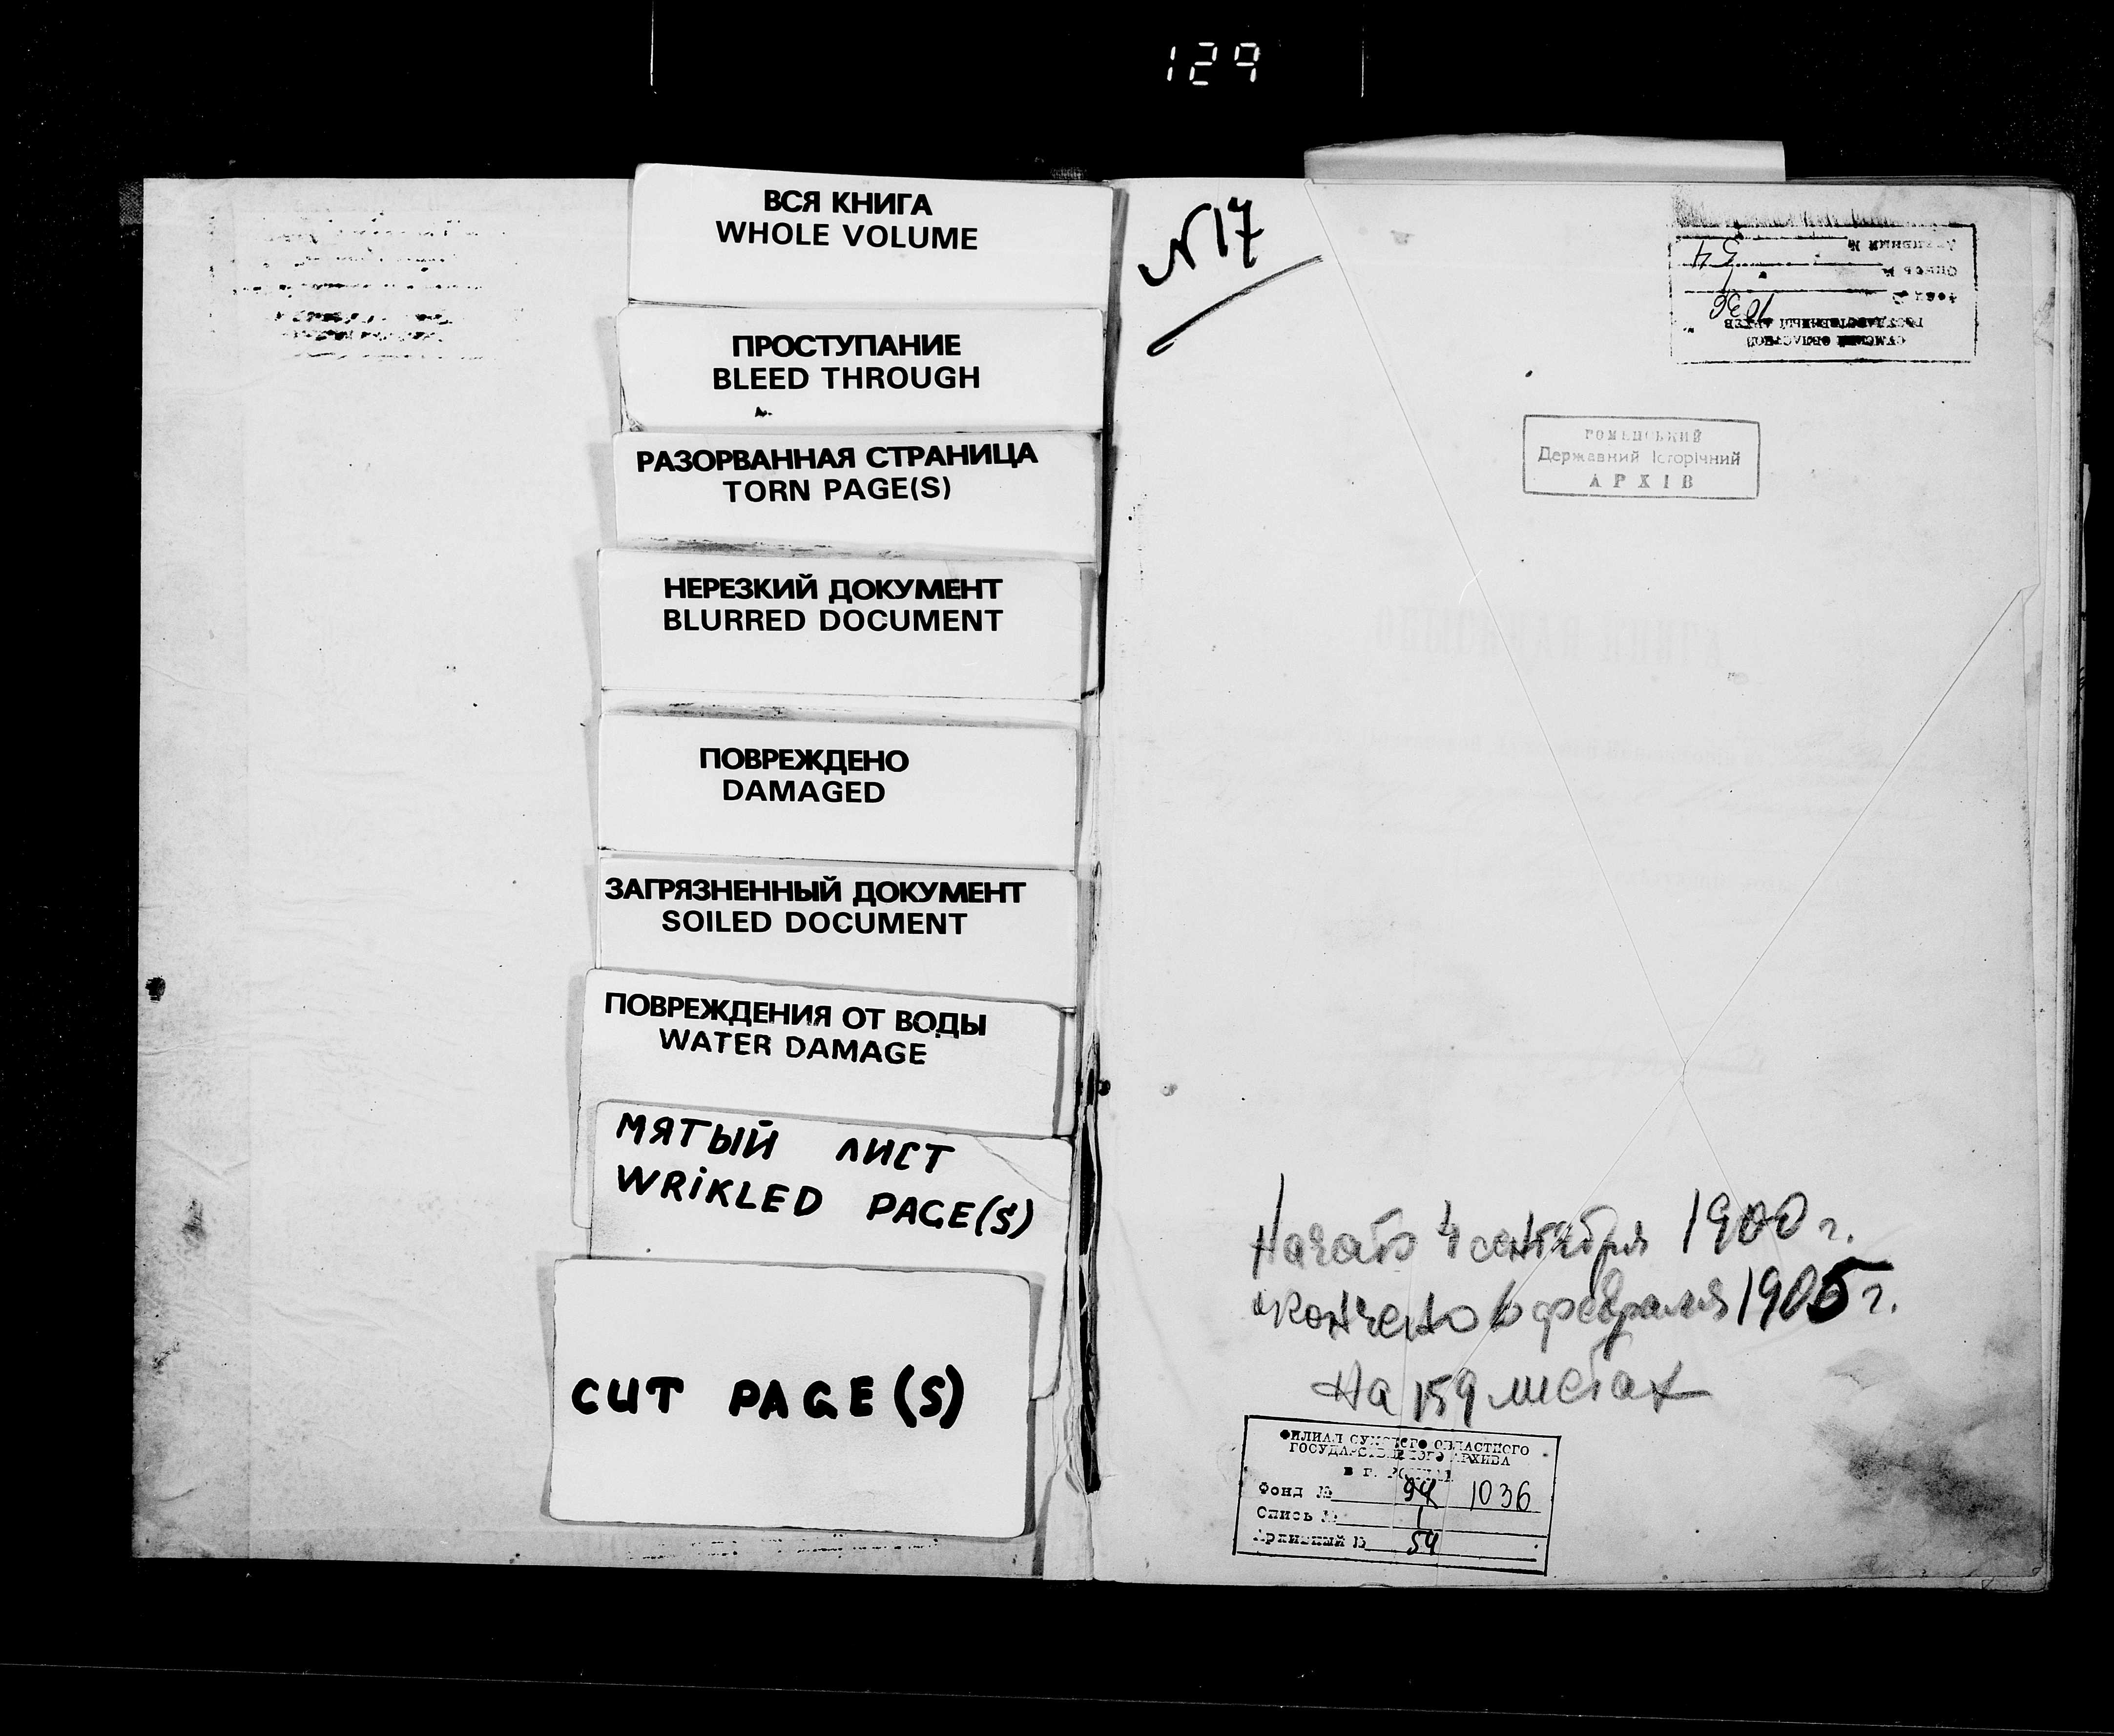 129
ВСЯ КНИГА
WHOLE VOLUME
ПРОСТУПАНИЕ
BLEED THROUGH
РАЗОРВАННАЯ СТРАНИЦА
TORN PAGE(S)
НЕРЕЗКИЙ ДОКУМЕНТ
BLURRED DOCUMENT
ПОВРЕЖДЕНО
DAMAGED
ЗАГРЯЗНЕННЫЙ ДОКУМЕНТ
SOILED DOCUMENT
ПОВРЕЖДЕНИЯ ОТ ВОДЫ
WATER DAMAGE
МЯТЫЙ ЛИСТ
WRIKLED PAGE(S)
CUT PAGE(S)
N17
СУМСКИЙ ОБЛАСТНОЙ
ГОСУДАРСТВЕННЫЙ АРХИВ
Фонд № 1036
Опись № 1
Архивный № 54
РОМЕНСЬКИЙ
Державний Історічний
АРХІВ
Начато 4 сентября 1900 г.
окончено 6 февраля 1905 г.
на 159 листах
ФИЛИАЛ СУМСКОГО ОБЛАСТНОГО
ГОСУДАРСТВЕННОГО АРХИВА
В Г. РОМНЫ
Фонд № 94 1036
Опись № 1
Архивный № 54